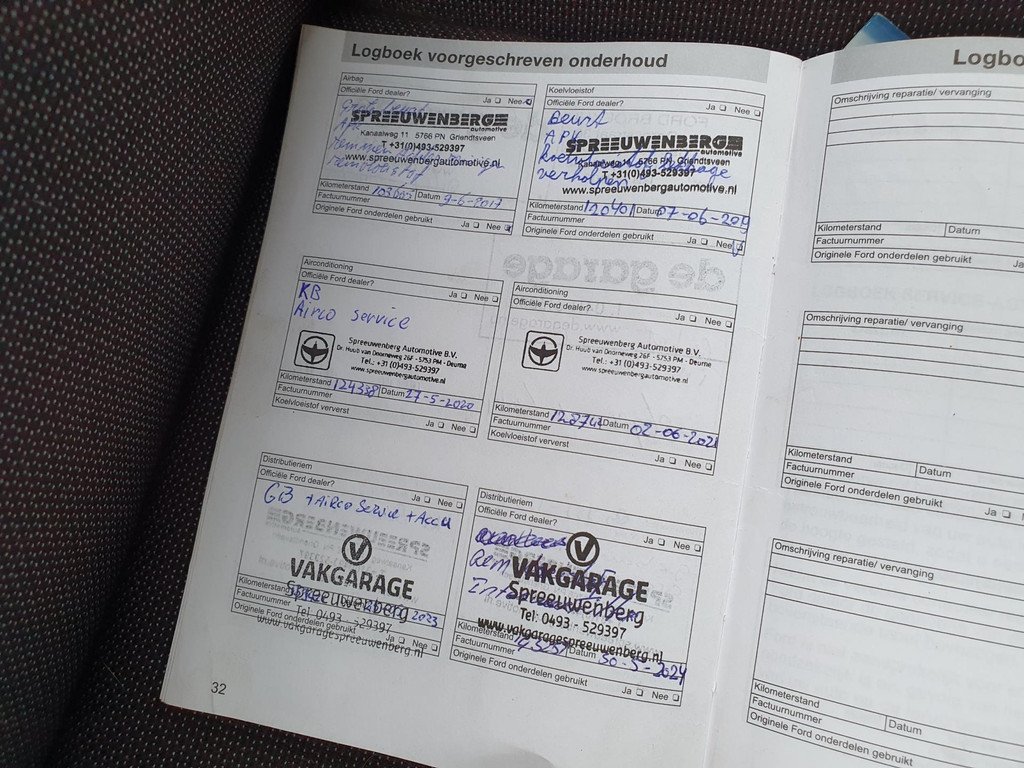 Logboek voorgeschreven onderhoud
Airbag
Officiële Ford dealer?
Ja Nee
APK
SPREEUWENBERG
automotive
Kanaalweg 11 5766 PN Griendtsveen
T +31(0)493-529397
www.spreeuwenbergautomotive.nl
remvloeistof
Kilometerstand Datum 9-6-2017
Factuurnummer
Originele Ford onderdelen gebruikt Ja Nee
Koelvloeistof
Officiële Ford dealer?
Ja Nee
Beurt
APK
SPREEUWENBERG
automotive
Kanaalweg 11 5766 PN Griendtsveen
T +31(0)493-529397
www.spreeuwenbergautomotive.nl
verholpen
Kilometerstand 120401 Datum 07-06-2019
Factuurnummer
Originele Ford onderdelen gebruikt Ja Nee
Airconditioning
Officiële Ford dealer?
Ja Nee
KB
Airco service
Spreeuwenberg Automotive B.V.
Dr. Huub van Doorneweg 26F - 5753 PM - Deurne
Tel.: +31 (0)493-529397
www.spreeuwenbergautomotive.nl
Kilometerstand 124338 Datum 27-5-2020
Factuurnummer
Koelvloeistof ververst Ja Nee
Airconditioning
Officiële Ford dealer?
Ja Nee
Spreeuwenberg Automotive B.V.
Dr. Huub van Doorneweg 26F - 5753 PM - Deurne
Tel.: +31 (0)493-529397
www.spreeuwenbergautomotive.nl
Kilometerstand Datum 02-06-2021
Factuurnummer
Koelvloeistof ververst
Ja Nee
Distributieriem
Officiële Ford dealer?
Ja Nee
GB + Airco Service + Accu
VAKGARAGE
Spreeuwenberg
Tel: 0493 - 529397
www.vakgaragespreeuwenberg.nl
Kilometerstand 2023
Factuurnummer
Originele Ford onderdelen gebruikt
Ja Nee
Distributieriem
Officiële Ford dealer?
Ja Nee
VAKGARAGE
Spreeuwenberg
Tel: 0493 - 529397
www.vakgaragespreeuwenberg.nl
Kilometerstand Datum 30-5-2024
Factuurnummer
Originele Ford onderdelen gebruikt
Ja Nee
32
Logbo
Omschrijving reparatie/ vervanging
Kilometerstand Datum
Factuurnummer
Originele Ford onderdelen gebruikt Ja
Omschrijving reparatie/ vervanging
Kilometerstand Datum
Factuurnummer
Originele Ford onderdelen gebruikt Ja
Omschrijving reparatie/ vervanging
Kilometerstand
Factuurnummer Datum
Originele Ford onderdelen gebruikt